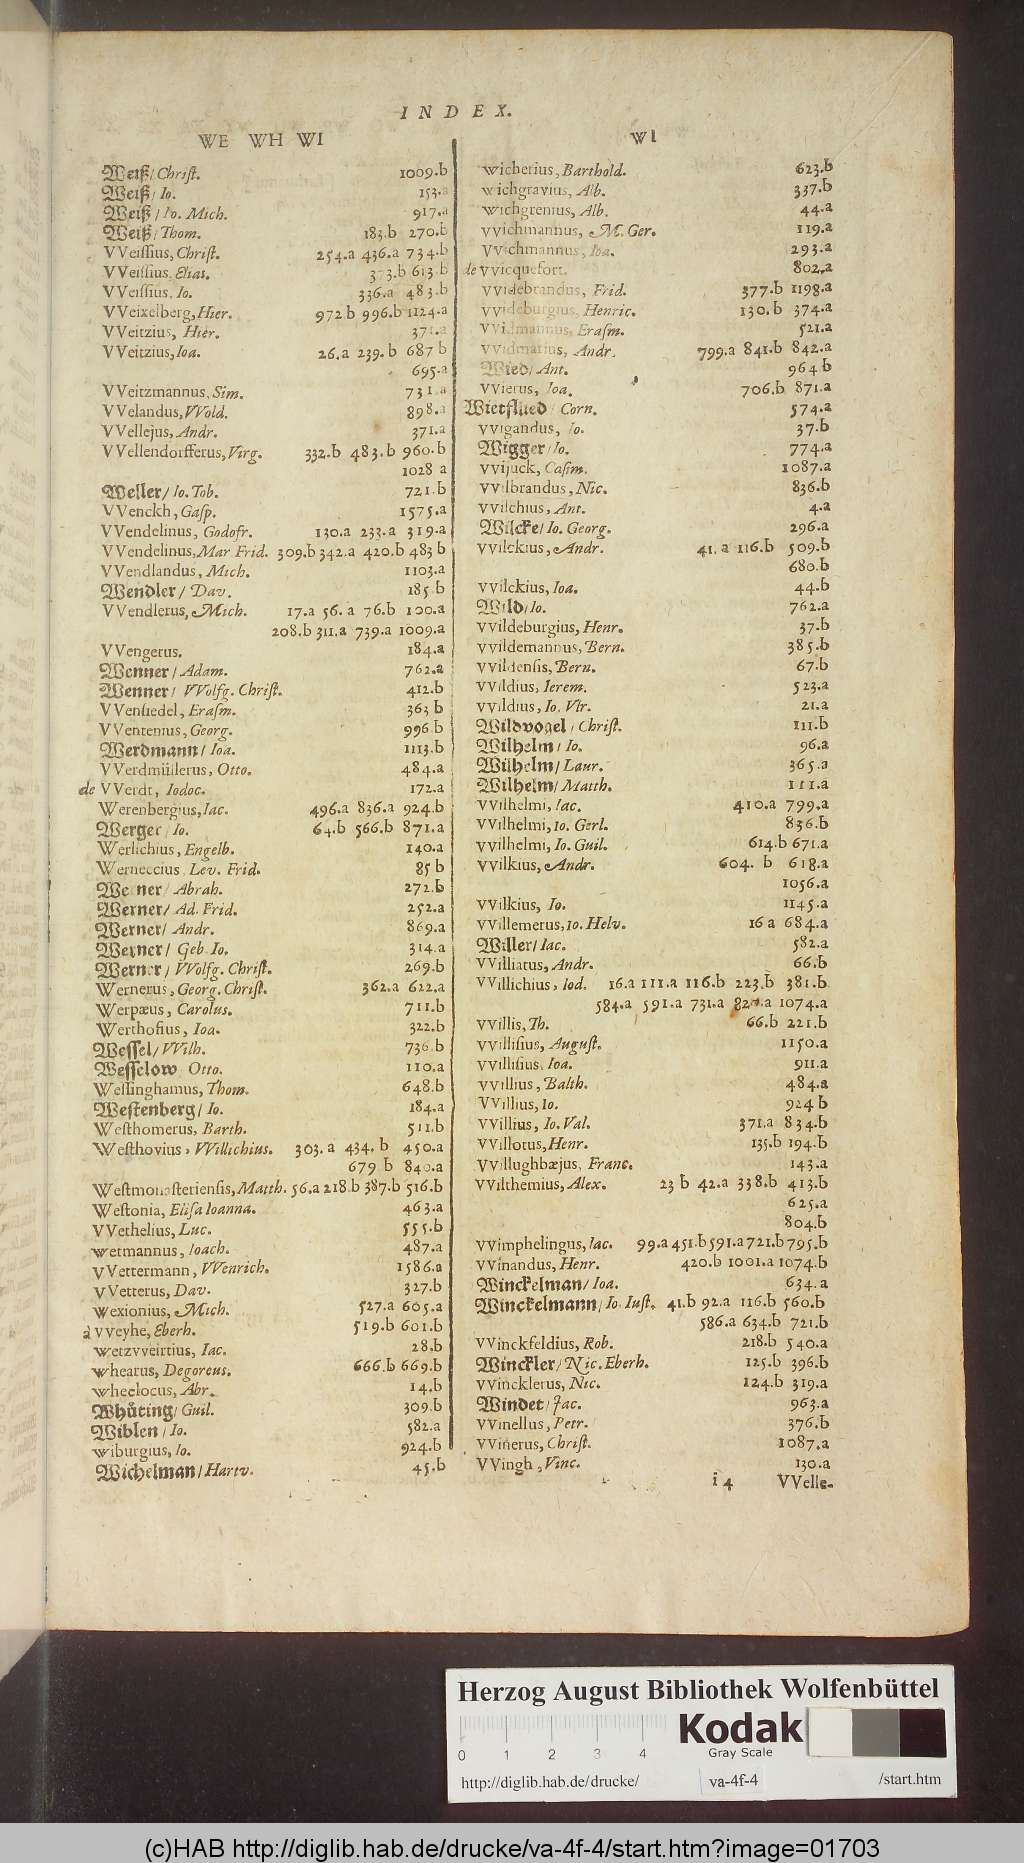 INDEX.
WE WH WI
Weiß/ Christ. 1009.b
Weiß/ Io. 153.a
Weiß/ Io. Mich. 917.a
Weiß/ Thom. 183.b 270.b
VVeissius, Christ. 254.a 436.a 734.b
VVeissius, Elias. 373.b 613.b
VVeissius, Io. 336.a 483.b
VVeixelberg, Hier. 972 b 996.b 1124.a
VVeitzius, Hier. 371.a
VVeitzius, Ioa. 26.a 239.b 687 b
695.a
VVeitzmannus, Sim. 731.a
VVelandus, VVold. 898.a
VVellejus, Andr. 371.a
VVellendorfferus, Virg. 332.b 483.b 960.b
1028 a
Weller/ Io. Tob. 721.b
VVenckh, Gasp. 1575.a
VVendelinus, Godofr. 130.a 233.a 319.a
VVendelinus, Mar Frid. 309.b 342.a 420.b 483 b
VVendlandus, Mich. 1103.a
Wendler/ Dav. 185.b
VVendlerus, Mich. 17.a 56.a 76.b 100.a
208.b 311.a 739.a 1009.a
VVengerus. 184.a
Wenner/ Adam. 762.a
Wenner/ VVolfg. Christ. 412.b
VVensiedel, Erasm. 363 b
VVentenius, Georg. 996.b
Werdmann/ Ioa. 1113.b
VVerdmüllerus, Otto. 484.a
de VVerdt, Iodoc. 172.a
Werenbergius, Iac. 496.a 836.a 924.b
Werger/ Io. 64.b 566.b 871.a
Werlichius, Engelb. 140.a
Werneccius, Lev. Frid. 85 b
Werner/ Abrah. 272.b
Werner/ Ad. Frid. 252.a
Werner/ Andr. 869.a
Werner/ Geb. Io. 314.a
Werner/ VVolfg. Christ. 269.b
Wernerus, Georg. Christ. 362.a 622.a
Werpæus, Carolus. 711.b
Werthofius, Ioa. 322.b
Wessel/ VVilh. 736.b
Wesselow Otto. 110.a
Wessinghamus, Thom. 648.b
Westenberg/ Io. 184.a
Westhomerus, Barth. 511.b
Westhovius, VVillichius. 303.a 434.b 450.a
679 b 840.a
Westmonasteriensis, Matth. 56.a 218.b 387.b 516.b
Westonia, Elisa Ioanna. 463.a
VVethelius, Luc. 555.b
wetmannus, Ioach. 487.a
VVettermann, VVenrich. 1586.a
VVetterus, Dav. 327.b
wexionius, Mich. 527.a 605.a
à VVeyhe, Eberh. 519.b 601.b
wetzvveirtius, Iac. 28.b
whearus, Degoreus. 666.b 669.b
wheelocus, Abr. 14.b
Whüting/ Guil. 309.b
Wiblen/ Io. 582.a
wiburgius, Io. 924.b
Wichelman/ Hartv. 45.b
WI
wicherius, Barthold. 623.b
wichgravius, Alb. 337.b
wichgrenius, Alb. 44.a
VVichmannus, M. Ger. 119.a
VVichmannus, Ioa. 293.a
de VVicquefort. 802.a
VVidebrandus, Frid. 377.b 1198.a
VVideburgius, Henric. 130.b 374.a
VVidmannus, Erasm. 521.a
VVidmarius, Andr. 799.a 841.b 842.a
Wied/ Ant. 964 b
VVierus, Ioa. 706.b 871.a
Wietflied/ Corn. 574.a
VVigandus, Io. 37.b
Wigger/ Io. 774.a
VVijuck, Casim. 1087.a
VVilbrandus, Nic. 836.b
VVilchius, Ant. 4.a
Wilcke/ Io. Georg. 296.a
VVilckius, Andr. 41.a 116.b 509.b
680.b
VVilckius, Ioa. 44.b
Wild/ Io. 762.a
VVildeburgius, Henr. 37.b
VVildemannus, Bern. 385.b
VVildensis, Bern. 67.b
VVildius, Ierem. 523.a
VVildius, Io. Vlr. 21.a
Wildvogel/ Christ. 111.b
Wilhelm/ Io. 96.a
Wilhelm/ Laur. 365.a
Wilhelm/ Matth. 111.a
VVilhelmi, Iac. 410.a 799.a
VVilhelmi, Io. Gerl. 836.b
VVilhelmi, Io. Guil. 614.b 671.a
VVilkius, Andr. 604. b 618.a
1056.a
VVilkius, Io. 1145.a
VVillemerus, Io. Helv. 16 a 684.a
Willer/ Iac. 582.a
VVilliatus, Andr. 66.b
VVillichius, Iod. 16.a 111.a 116.b 223.b 381.b
584.a 591.a 731.a 820.a 1074.a
VVillis, Th. 66.b 221.b
VVillisius, August. 1150.a
VVillisius, Ioa. 911.a
VVillius, Balth. 484.a
VVillius, Io. 924 b
VVillius, Io. Val. 371.a 834.b
VVillotus, Henr. 135.b 194.b
VVillughbæjus, Franc. 143.a
VVilthemius, Alex. 23 b 42.a 338.b 413.b
625.a
804.b
VVimphelingus, Iac. 99.a 451.b 591.a 721.b 795.b
VVinandus, Henr. 420.b 1001.a 1074.b
Winckelman/ Ioa. 634.a
Winckelmann/ Io. Iust. 41.b 92.a 116.b 560.b
586.a 634.b 721.b
VVinckfeldius, Rob. 218.b 540.a
Winckler/ Nic. Eberh. 125.b 396.b
VVincklerus, Nic. 124.b 319.a
Windet/ Jac. 963.a
VVinellus, Petr. 376.b
VVinerus, Christ. 1087.a
VVingh, Vinc. 130.a
i 4 VVelle-
Herzog August Bibliothek Wolfenbüttel
Kodak
Gray Scale
0 1 2 3 4
http://diglib.hab.de/drucke/ va-4f-4 /start.htm
(c)HAB http://diglib.hab.de/drucke/va-4f-4/start.htm?image=01703